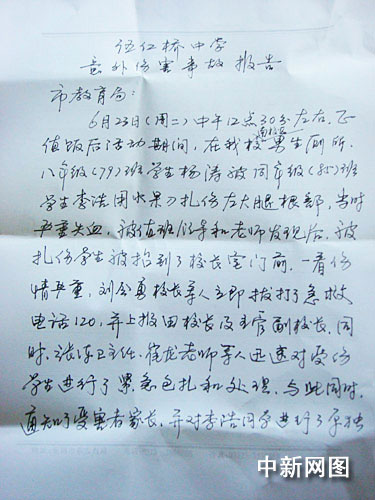 伍仁桥中学
意外伤害事故报告
市教育局：
6月23日（周二）中午12点30分左右，正
值饭后活动期间，在我校南校区男生厕所，
八年级（79）班学生杨涛被同年级（85）班
学生李浩用水果刀扎伤左大腿根部，当时
严重失血，被值班领导和老师发现后，被
扎伤学生被抬到了校长室门前，一看伤
情严重，刘会勇校长等人立即拔打了急救
电话120，并上报田校长及主管副校长，同
时，张海卫主任、崔龙老师等人迅速对受伤
学生进行了紧急包扎和处理，与此同时，
通知了受害者家长，并对李浩同学进行了单独
中新网图